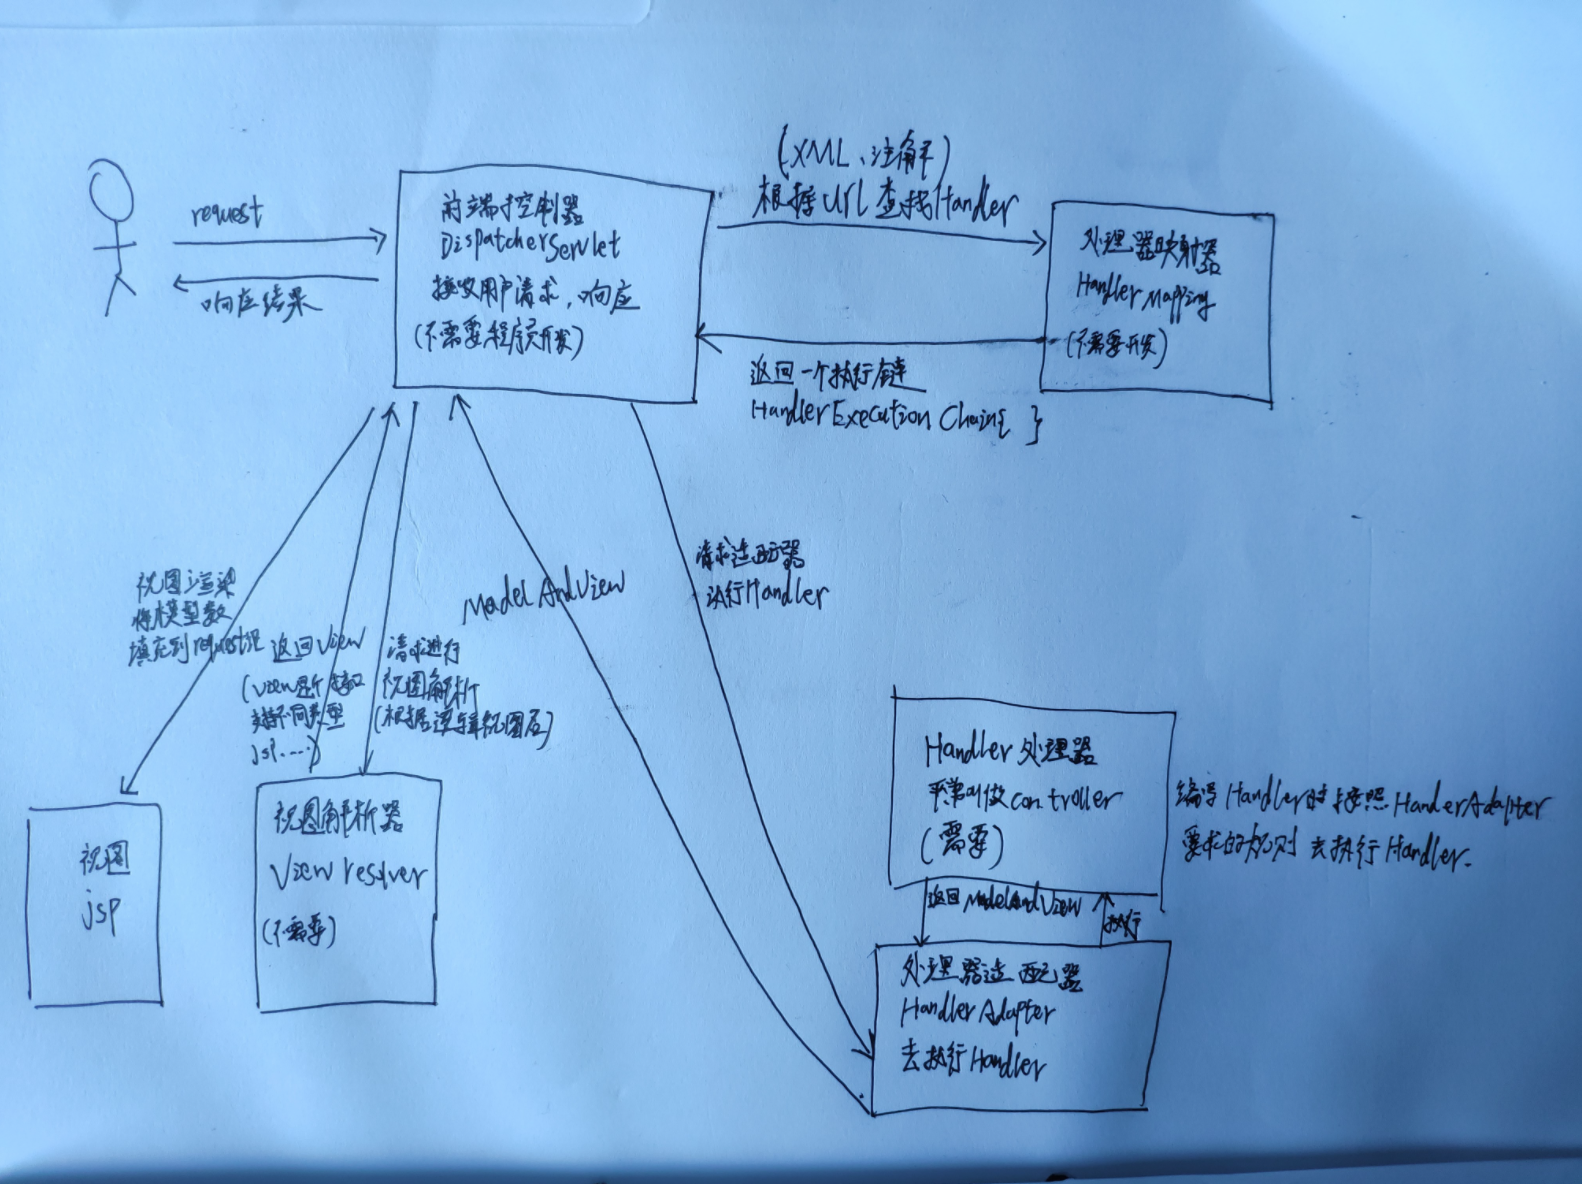 request
响应结果
前端控制器
DispatcherServlet
接收用户请求,响应
(不需要程序员开发)
(XML、注解)
根据url查找Handler
处理器映射器
Handler Mapping
(不需要开发)
返回一个执行链
HandlerExecution Chain{ }
请求适配器
执行Handler
ModelAndView
视图渲染
将模型数
填充到request域
返回View
(View是个接口
支持不同类型
jsp....)
请求进行
视图解析
(根据逻辑视图名)
视图
jsp
视图解析器
View resolver
(不需要)
Handler 处理器
平常叫做controller
(需要)
编写Handler时按照HanderAdapter
要求的规则去执行Handler.
返回ModelAndView
执行
处理器适配器
HandlerAdapter
去执行Handler